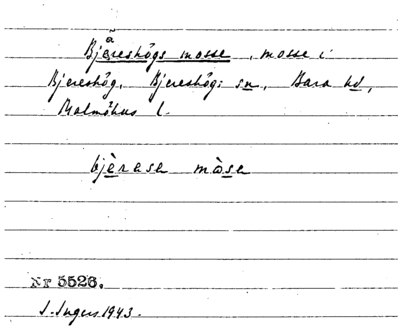 Bjäreshögs mosse, mosse i
Bjereshög, Bjereshögs sn, Bara hd,
Malmöhus l.
bjèrase màse
Nr 5526.
S. Ingers 1943.